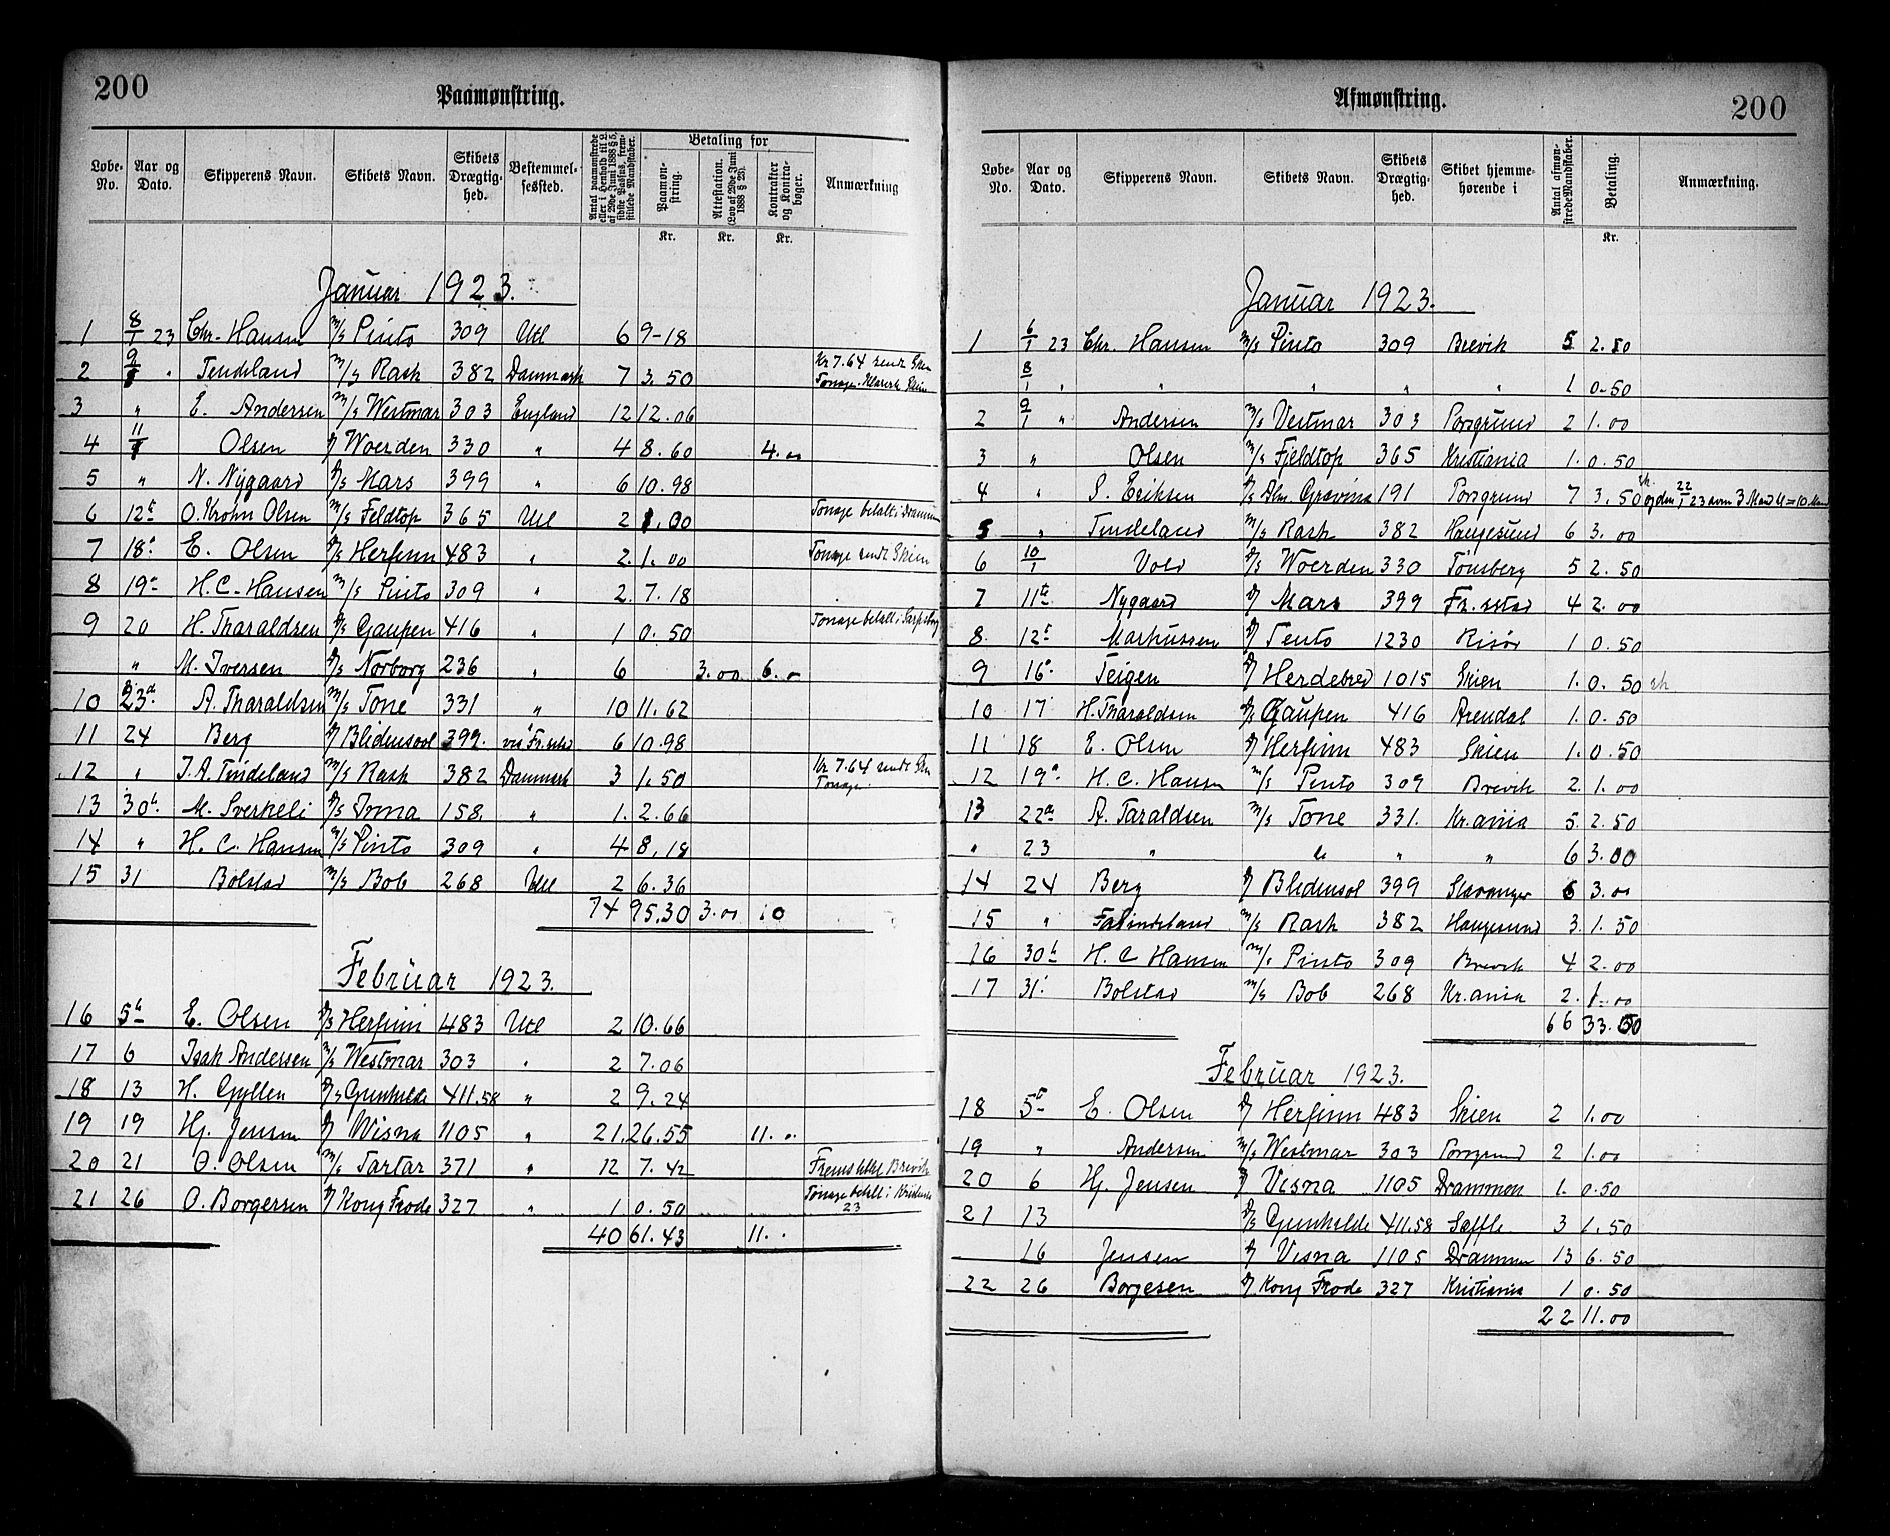 200
Paamønstring.
Løbe-No. | Aar og Dato. | Skipperens Navn. | Skibets Navn. | Skibets Drægtighed. | Bestemmelsessted. | Antal paamønstrede eller i Henhold til L. af 29de Juni 1888 § 5, sidste Passus, fremstillede Mandskaber. | Betaling for | Paamønstring. | Attestation. (Lov af 29de Juni 1888 § 23). | Kontrakter og Kontrabøger. | Anmærkning
Kr. | Kr. | Kr.
Januar 1923.
1 | 8/1 23 | Chr. Hansen | m/s Pinto | 309 | Utl | 6 | 9-18
2 | 9/1 " | Tendeland | m/s Rask | 382 | Danmark | 7 | 3.50 | Kr 7.64 sendt Skien Tonage
3 | " | E. Andersen | m/s Westmar | 303 | England | 12 | 12.06
4 | 11/1 | Olsen | D/ Woerden | 330 | " | 4 | 8.60 | 4.00
5 | " | N. Nygaard | D/s Mars | 399 | " | 6 | 10.98
6 | 12te | O. Krohn Olsen | m/s Feldtop | 365 | Utl | 2 | 1.00 | Tonage betalt i Drammen
7 | 18. | E. Olsen | D/s Herfinn | 483 | " | 2. | 1.00 | Tonage sendt Skien
8 | 19. | H.C. Hansen | m/s Pinto | 309 | " | 2. | 7.18
9 | 20 | H. Tharaldsen | D/s Gaupen | 416 | " | 1 | 0.50 | Tonage betalt i Sarpsborg
" | M. Iversen | D/s Norborg | 236 | " | 6 | 3.00 | 6.-
10 | 23d. | A. Tharaldsen | m/s Tone | 331 | " | 10 | 11.62
11 | 24 | Berg | D/ Blidensool | 399. | via Fr.stad | 6 | 10.98
12 | " | T.A. Tindeland | m/s Rask | 382 | Danmark | 3 | 1.50 | Kr 7.64 sendt Skien Tonage.
13 | 30te | M. Sverkeli | D/s Irma | 158. | " | 1. | 2.66
14 | " | H. C. Hansen | m/s Pinto | 309 | " | 4 | 8.18
15 | 31 | Bolstad | m/s Bob | 268 | Utl | 2 | 6.36
74 | 95.30 | 3.00 | 10
Februar 1923.
16 | 5te | E. Olsen | D/s Herfinn | 483 | Utl | 2 | 10.66
17 | 6 | Isak Andersen | m/s Westmar | 303 | " | 2 | 7.06
18 | 13 | H. Gyllen | D/s Gunhilde | 411.58 | " | 2 | 9.24
19 | 19 | Hj. Jensen | D/ Wisna | 1105 | " | 21. | 26.55 | 11. "
20 | 21 | O. Olsen | m/s Tartar | 371 | " | 12 | 7.42 | Brevik
21 | 26 | O. Borgersen | D/ Kong Frode | 327 | " | 1 | 0.50 | Tonage betalt i 23
40 | 61.43 | 11. "
200
Afmønstring.
Løbe-No. | Aar og Dato. | Skipperens Navn. | Skibets Navn. | Skibets Drægtighed. | Skibet hjemmehørende i | Antal afmønstrede Mandstaber. | Betaling. | Anmærkning.
Kr.
Januar 1923.
1 | 6/1 23 | Chr. Hansen | m/s Pinto | 309 | Brevik | 5 | 2.50
8/1 " | " | " | " | " | 1 | 0.50
2 | 9/1 " | Andersen | m/s Vestmar | 303 | Porsgrund | 2 | 1.00
3 | " | Olsen | m/s Fjeldtop | 365 | Kristiania | 1. | 0.50
4 | " | S. Eriksen | D/s Gravina | 191 | Porsgrund | 7 | 3.50 | og den 22/1 23 = 10 Man
5 | " | Tindeland | m/s Rask | 382 | Haugesund | 6 | 3.00
6 | 10/1 | Vold | D/s Woerden | 330 | Tönsberg | 5 | 2.50
7 | 11te | Nygaard | D/ Mars | 399 | Fr.sstad | 4 | 2.00
8. | 12te | Markussen | D/ Tento | 1230 | Risör | 1 | 0.50
9 | 16. | Teigen | D/ Herdebred | 1015 | Skien | 1. | 0.50
10 | 17 | H. Tharaldsen | D/s Gaupen | 416 | Arendal | 1. | 0.50
11 | 18 | E. Olsen | D/ Herfinn | 483 | Skien | 1. | 0.50
12 | 19. | H. C. Hansen | m/s Pinto | 309 | Brevik | 2. | 1.00
13 | 22d | A. Taraldsen | m/s Tone | 331. | Kr.ania | 5. | 2.50
" | 23 | " | " | " | " | 6 | 3.00
14 | 24 | Berg | D/ Blidensol | 399 | Stavanger | 6 | 3.00
15 | " | Tindeland | m/s Rask | 382 | Haugesund | 3. | 1.50
16 | 30te | H. C Hansen | m/s Pinto | 309 | Brevik | 4 | 2.00
17 | 31. | Bolstad | m/s Bob | 268 | Kr.ania | 2. | 1.00
66 | 33.00
Februar 1923.
18 | 5te | E. Olsen | D/ Herfinn | 483 | Skien | 2 | 1.00
19 | " | Andersen | m/s Westmar | 303 | Porsgrund | 2 | 1.00
20 | 6 | Hj. Jensen | D/ Visna | 1105 | Drammen | 1. | 0.50
21 | 13 | D/s Gunhilde | 411.58 | Säffle | 3 | 1.50
16 | Jensen | D/ Visna | 1105 | Drammen | 13 | 6.50
22 | 26 | Borgesen | D/ Kong Frode | 327 | Kristiania | 1 | 0.50
22 | 11.00